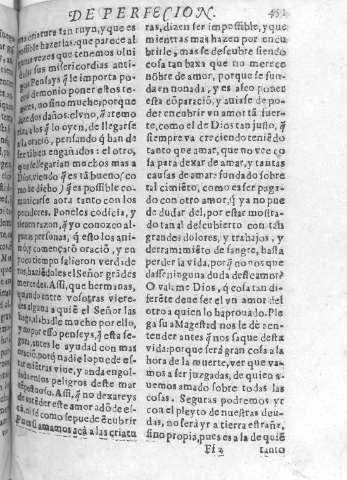 DE PERFECION. 452
una criatura tan ruyn, y que es
possible hazerlas: que parece al
gunas vezes que tenemos olui
dadas sus misericordias anti
guas Pensays q̃ le importa po
co al demonio poner estos te-
mores, no sino mucho; porque
haze dos daños: el vno, q̃ atemo
riza a los q̃ lo oyen, de llegarse
a la oració, pensando q̃ han de
ser tãbien engañados: el otro,
que se llegarian muchos mas a
Dios, viendo q̃ es tã bueno (co
mo he dicho) q̃ es possible co-
municarse aora tanto con los
pecadores. Poneles codicia, y
tienen razon, q̃ yo conozco al-
gunas personas, q̃ esto los ani-
mó, y començaró oració, y en
poco tiempo salieron verdade
ros, haziẽdoles el Señor grãdes
mercedes. Assi, que hermanas,
quando entre vosotras viere-
des alguna a quiẽ el Señor las
haga, alabadle mucho por ello,
y no por esso penseys, q̃ esta se
gura, antes le ayudad con mas
oració, porq̃ nadie lo puede es-
tar miẽtras viue, y anda engol-
fado en los peligros deste mar
tẽpestuoso. Assi, q̃ no dexareys
de entẽder este amor adõde es-
tà, ni sè como se puede ẽncubrir
Pues si amamos acà a las criatu
ras, dizen ser impossible, y que
mientras mas hazen por encu
brirle, mas se descubre siendo
cosa tan baxa que no merece
nõbre de amor, porque se fun-
da en nonada, y es asco poner
esta cõparació, y auiase de po-
der encubrir vn amor tã fuer-
te, como el de Dios tan justo, q̃
siempre va creciendo teniẽdo
tanto que amar, que no vee co
sa para dexar de amar, y tantas
causas de amar: fundado sobre
tal cimiẽto, como es ser paga-
do con otro amor, q̃ ya no pue
de dudar del, por estar mostra-
do tan al descubierto con tan
grandes dolores, y trabajos, y
derramamiẽto de sangre, hasta
perder la vida, porq̃ no nos que
dasse ninguna duda deste amor?
O valame Dios, q̃ cosa tan di-
ferẽte deue ser el vn amor del
otro a quien lo ha prouado. Ple
ga su a Magestad nos le dè a en-
tender antes q̃ nos saque desta
vida: porque serà gran cosa a la
hora de la muerte, ver que va-
mos a ser juzgadas, de quien a-
uemos amado sobre todas las
cosas. Seguras podremos yr
con el pleyto de nuestras deu-
das, no serà yr a tierra estraña,
sino propia, pues es a la de quiẽ
Ff 2 tanto